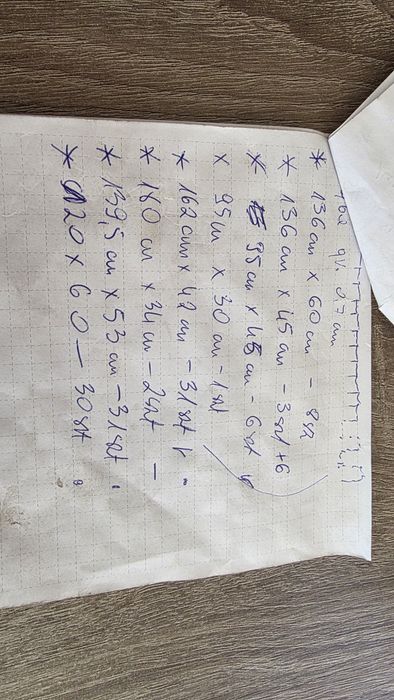 gr. 0,7 cm
* 136 cm x 60 cm - 8szt
* 136 cm x 45 cm - 3szt +6
* 95 cm x 45 cm - 6szt
x 95 cm x 30 cm - 1szt
* 162 cm x 42 cm - 31szt
* 160 cm x 34 cm - 2szt -
* 139,5 cm x 53 cm - 31szt
* 120 x 60 - 30szt